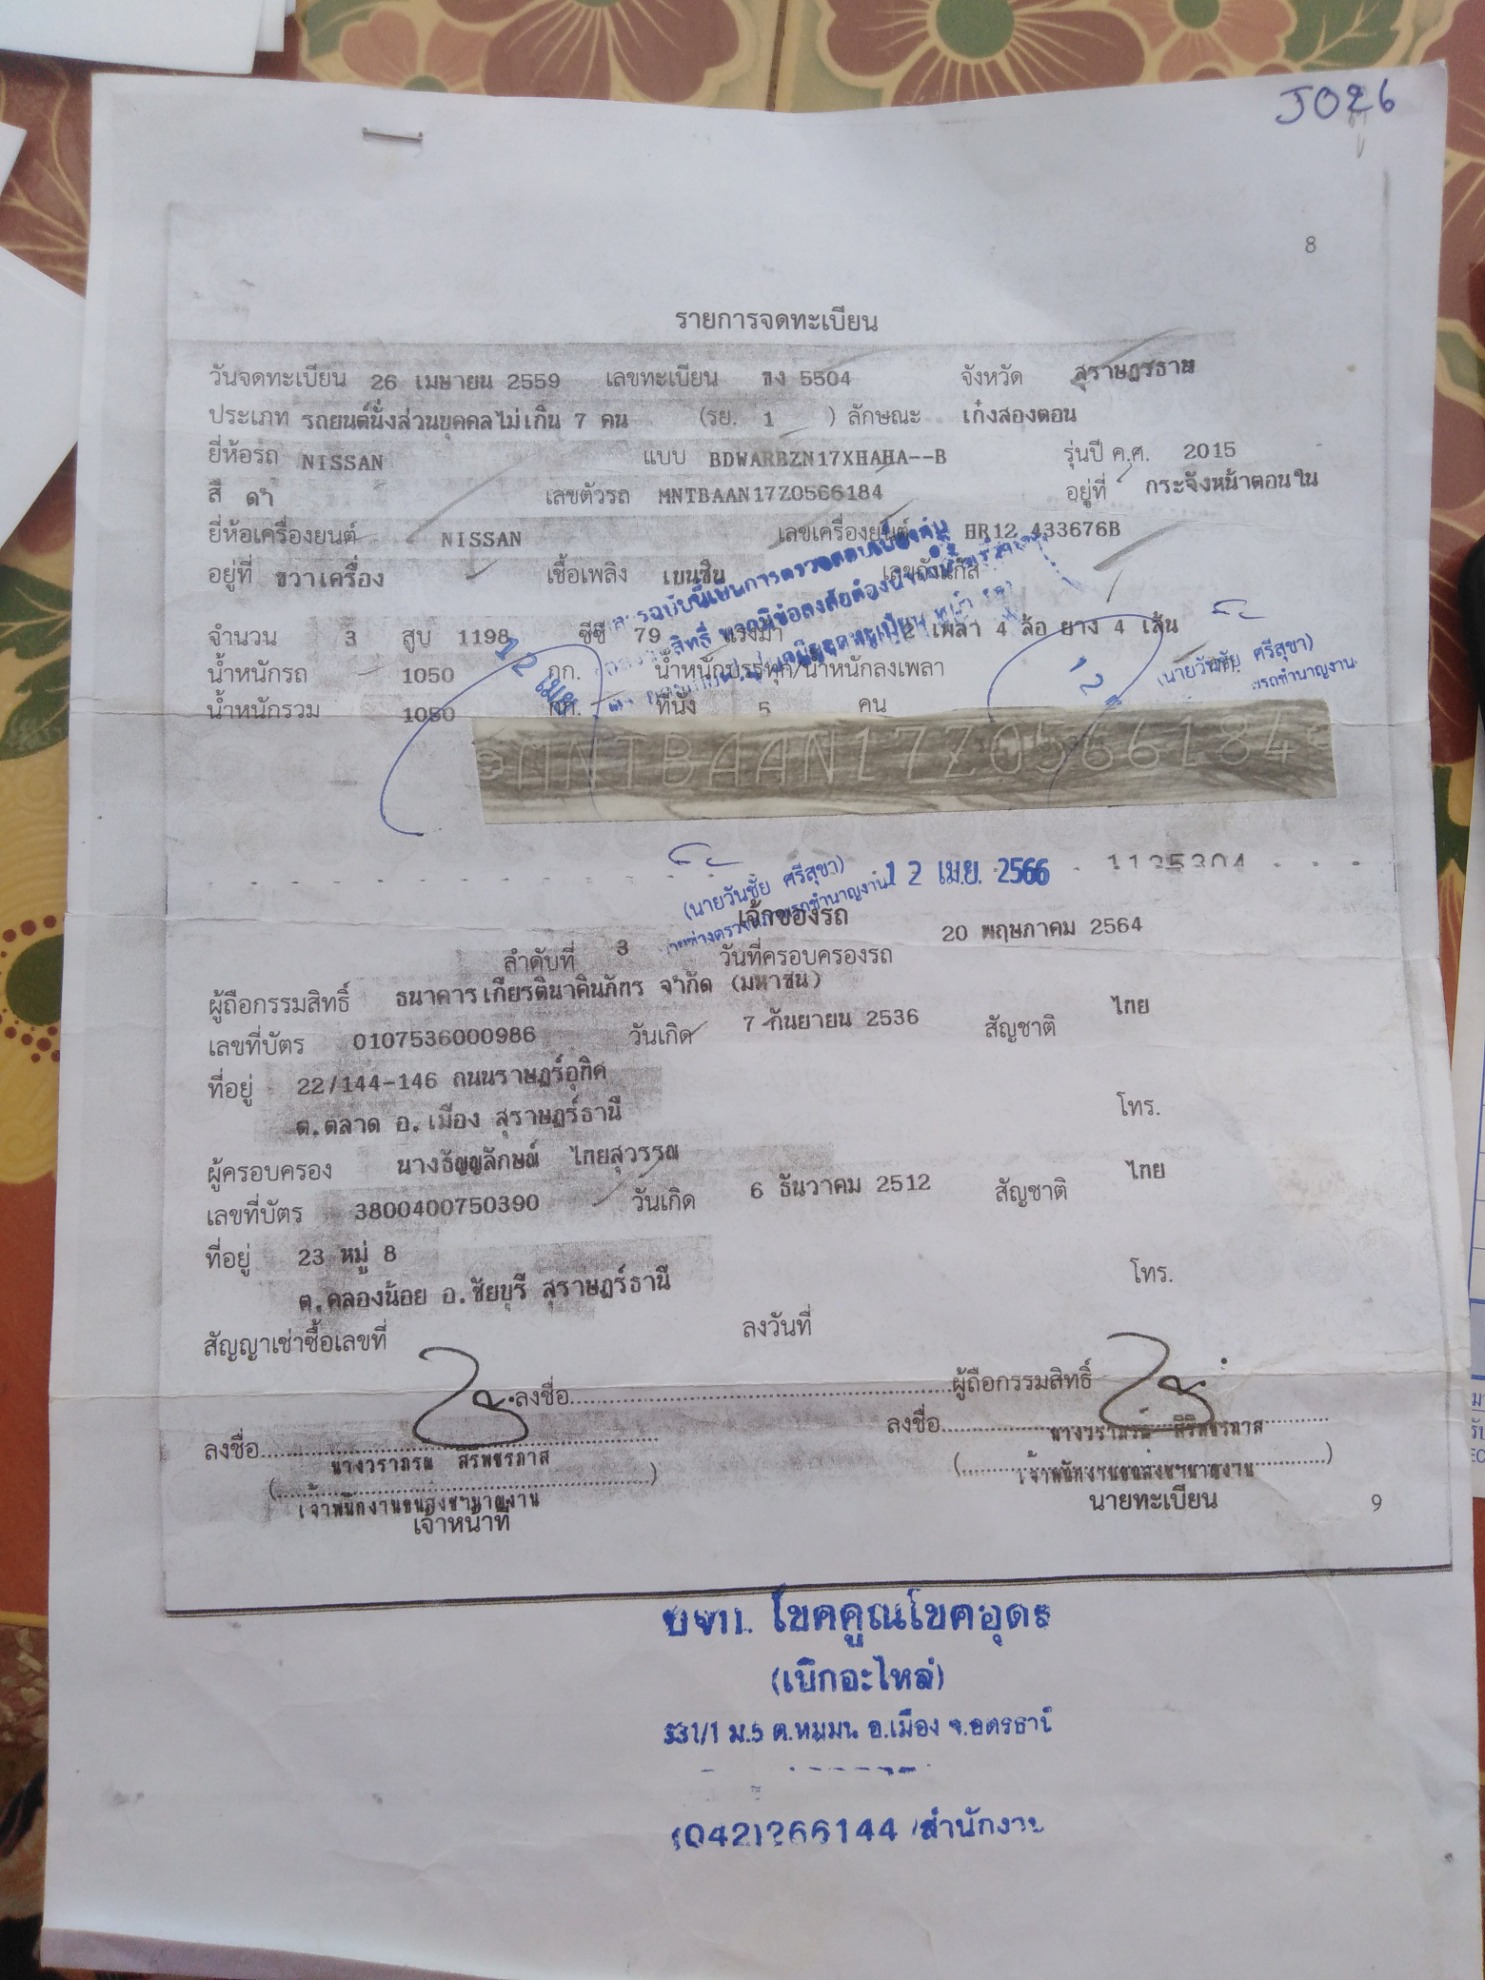 J026
8
รายการจดทะเบียน
วันจดทะเบียน 26 เมษายน 2559 เลขทะเบียน ขง 5504 จังหวัด สุราษฎร์ธานี
ประเภท รถยนต์นั่งส่วนบุคคลไม่เกิน 7 คน (รย. 1 ) ลักษณะ เก๋งสองตอน
ยี่ห้อรถ NISSAN แบบ BDWARBZN17XHAHA--B รุ่นปี ค.ศ. 2015
สี ดำ เลขตัวรถ MNTBAAN17Z0566184 อยู่ที่ กระจังหน้าตอนใน
ยี่ห้อเครื่องยนต์ NISSAN เลขเครื่องยนต์ HR12 433676B
อยู่ที่ ขวาเครื่อง เชื้อเพลิง เบนซิน เลขถังแก๊ส
จำนวน 3 สูบ 1198 ซีซี 79 แรงม้า 2 เพลา 4 ล้อ ยาง 4 เส้น
น้ำหนักรถ 1050 กก. น้ำหนักบรรทุก/น้ำหนักลงเพลา
(นายวันชัย ศรีสุขา)
น้ำหนักรวม 1050 กก. ที่นั่ง 5 คน
12 เม.ย.
12
MNTBAAN17Z0566184
(นายวันชัย ศรีสุขา) 12 เม.ย. 2566
เจ้าของรถ
ลำดับที่ 3 วันที่ครอบครองรถ 20 พฤษภาคม 2564
ผู้ถือกรรมสิทธิ์ ธนาคารเกียรตินาคินภัทร จำกัด (มหาชน)
เลขที่บัตร 0107536000986 วันเกิด 7 กันยายน 2536 สัญชาติ ไทย
ที่อยู่ 22/144-146 ถนนราษฎร์อุทิศ
ต.ตลาด อ.เมือง สุราษฎร์ธานี โทร.
ผู้ครอบครอง นางธัญญลักษณ์ ไทยสุวรรณ
เลขที่บัตร 3800400750390 วันเกิด 6 ธันวาคม 2512 สัญชาติ ไทย
ที่อยู่ 23 หมู่ 8
ต.คลองน้อย อ.ชัยบุรี สุราษฎร์ธานี โทร.
สัญญาเช่าซื้อเลขที่ ลงวันที่
ลงชื่อ ผู้ถือกรรมสิทธิ์
ลงชื่อ ลงชื่อ
เจ้าหน้าที่ นายทะเบียน 9
บจก. โชคคูณโชคอุดร
(เบิกอะไหล่)
531/1 ม.5 ต.หมูม่น อ.เมือง จ.อุดรธานี
(042)266144 /สำนักงาน